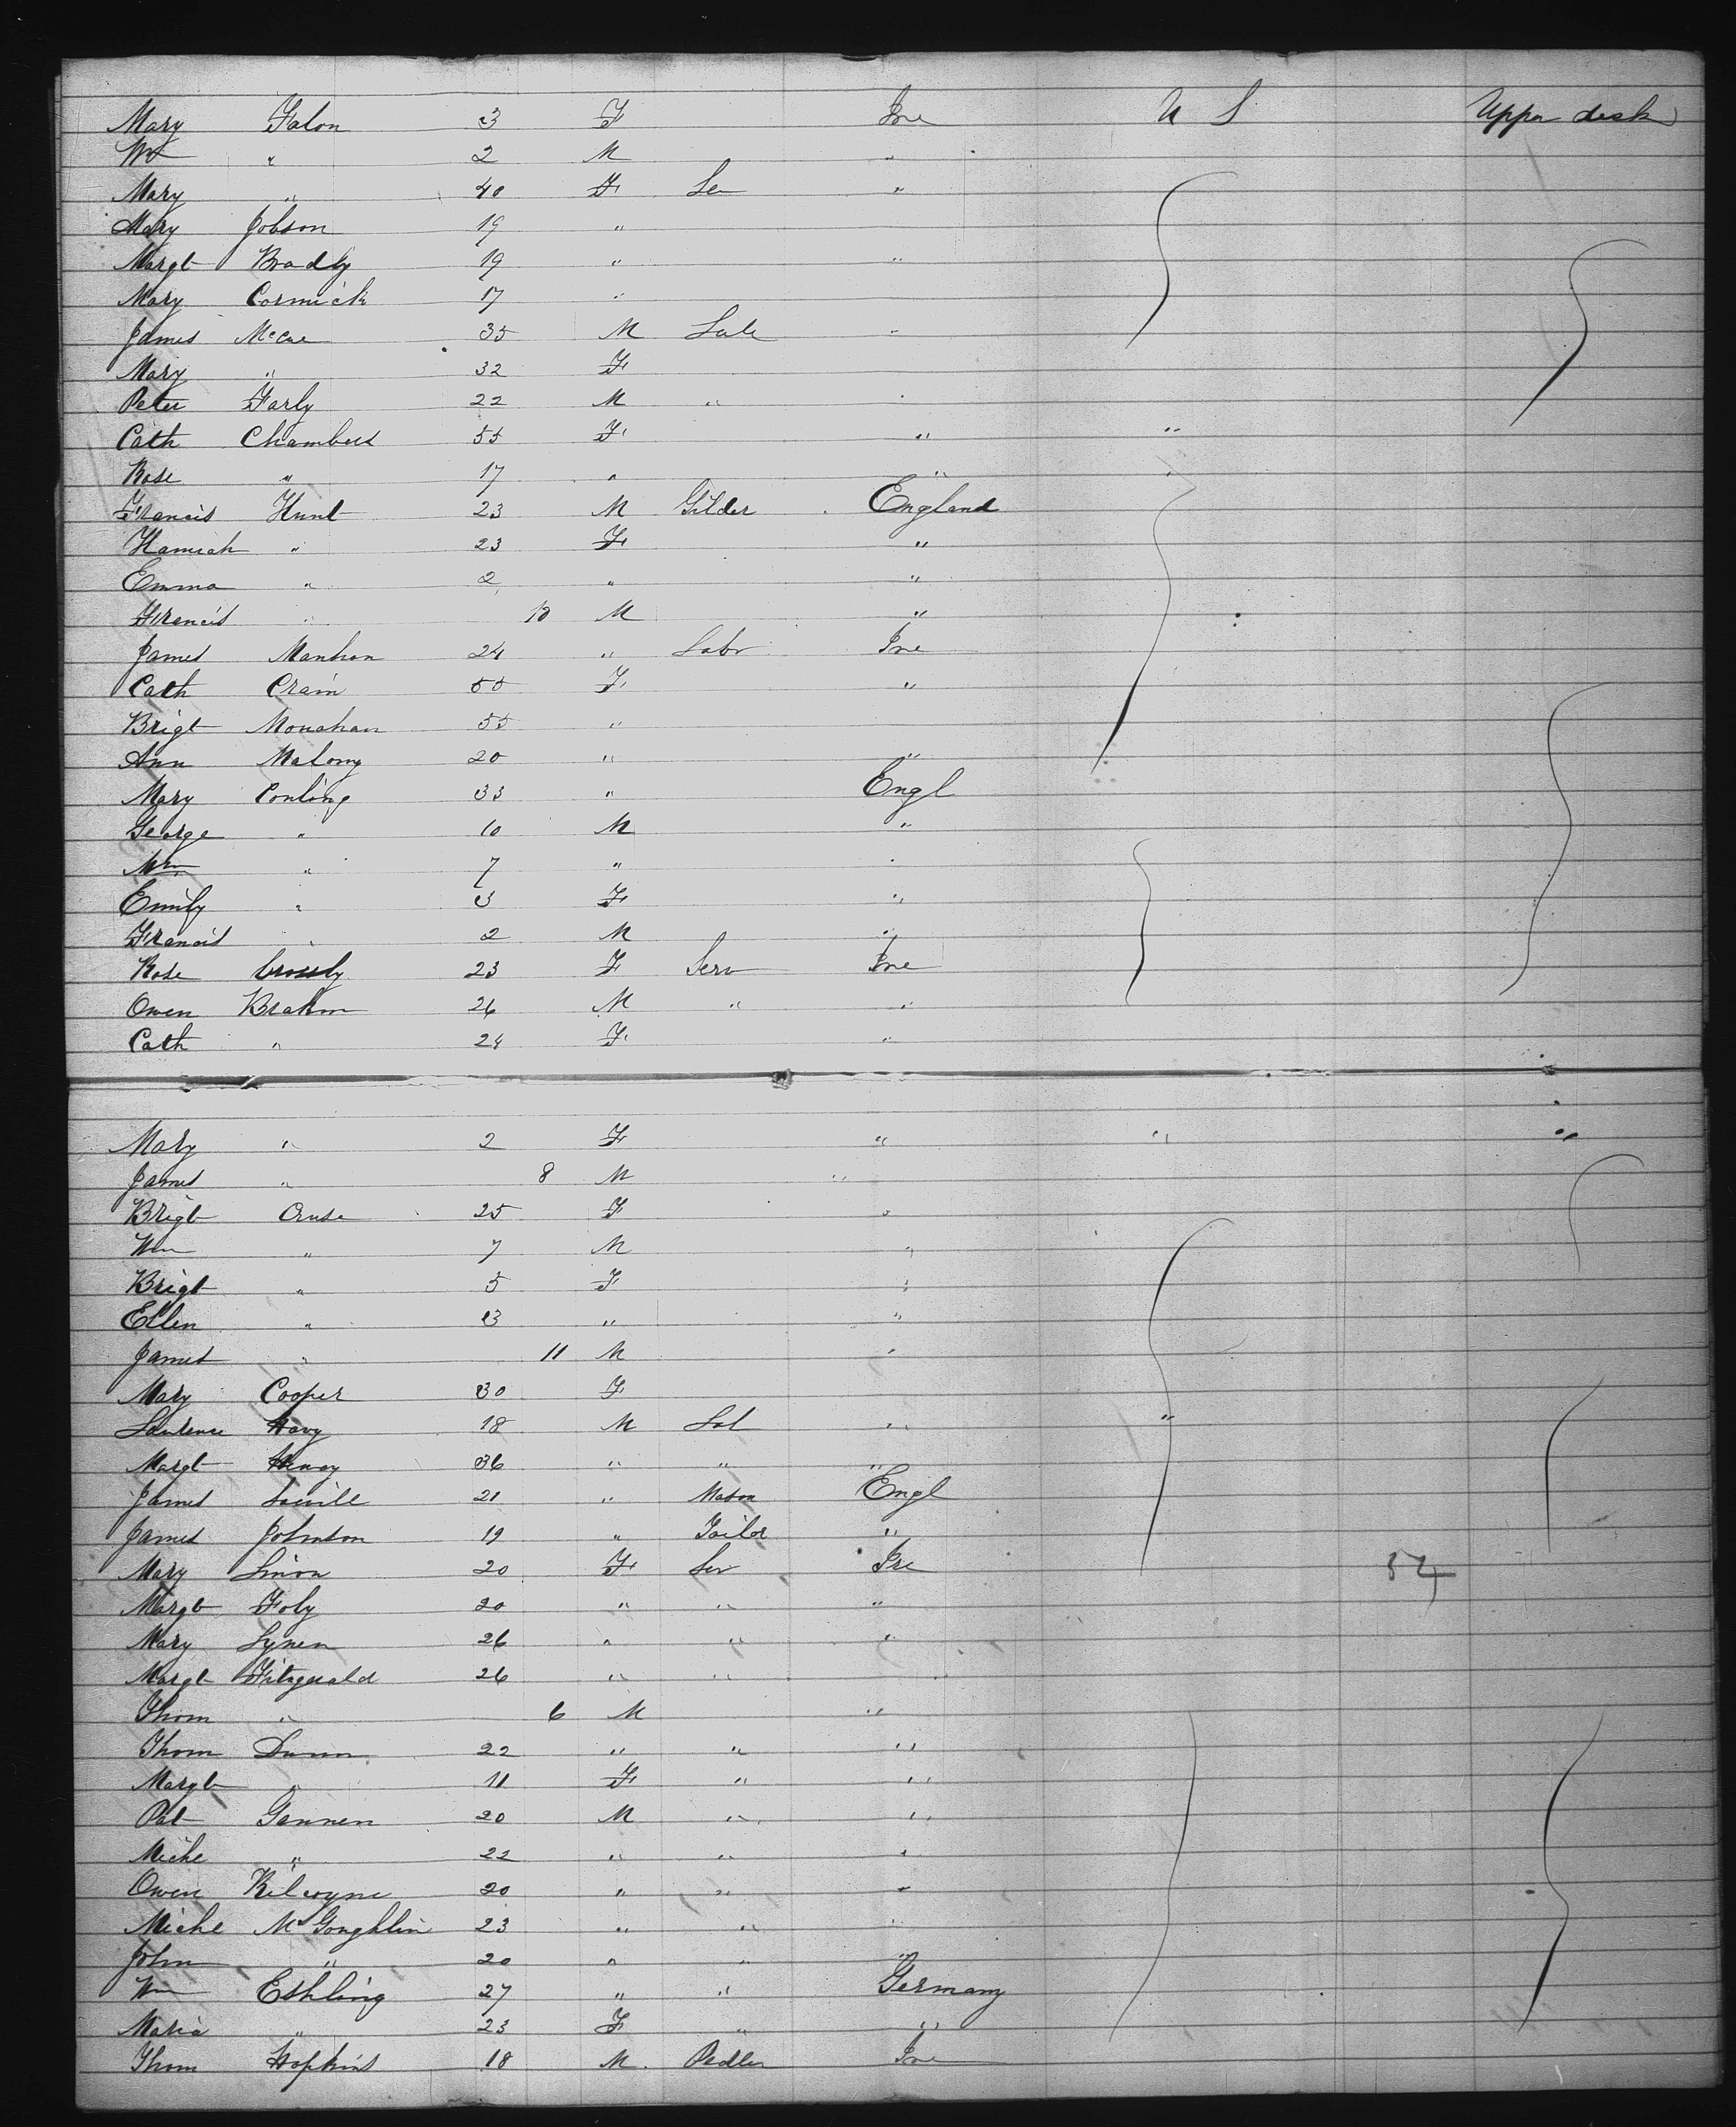 Mary Falon 3 F Ire U S Upper desk
Wm " 2 M "
Mary " 40 F Se "
Mary Jobson 19 "
Margt Bradly 19 " "
Mary Cormick 17 "
James McCue 35 M Lab "
Mary " 32 F
Peter Farly 22 M " "
Cath Chambers 55 F " "
Rose " 17 " " "
Francis Hunt 23 M Gilder England
Hannah " 23 F "
Emma " 2 " "
Francis " 10 M "
James Manhan 24 " Labr Ire
Cath Crain 55 F "
Brigt Monahan 55 "
Ann Malony 20 " "
Mary Conling 33 " Engl "
George " 10 M "
Wm " 7 " "
Emily " 3 F "
Francis " 2 M "
Rose Crossly 23 F Serv Ire
Owen Brahm 26 M " "
Cath " 24 F "
Mary " 2 F " " "
James " 8 M "
Brigt Cruse 25 F "
Wm " 7 M "
Brigt " 5 F "
Ellen " 3 " "
James " 11 M "
Mary Cooper 30 F
Laurence Havy 18 M Lab " "
Margt Henay 36 " " "
James Saville 21 " Mason Engl
James Johnson 19 " Tailor "
Mary Linon 20 F Ser Ire 54
Margt Foly 20 " " "
Mary Lynen 26 " " "
Margt Fitzgerald 26 " " "
Thom " 6 M "
Thom Dunn 22 " " "
Margt " 11 F " "
Pat Gannen 20 M " "
Miche " 22 " " "
Owen Kilcoyne 20 " " "
Miche McGoughlin 23 " " "
John " 20 " " "
Wm Eshling 27 " " Germany
Maria " 23 F " "
Thom Hopkins 18 M Pedler Ire